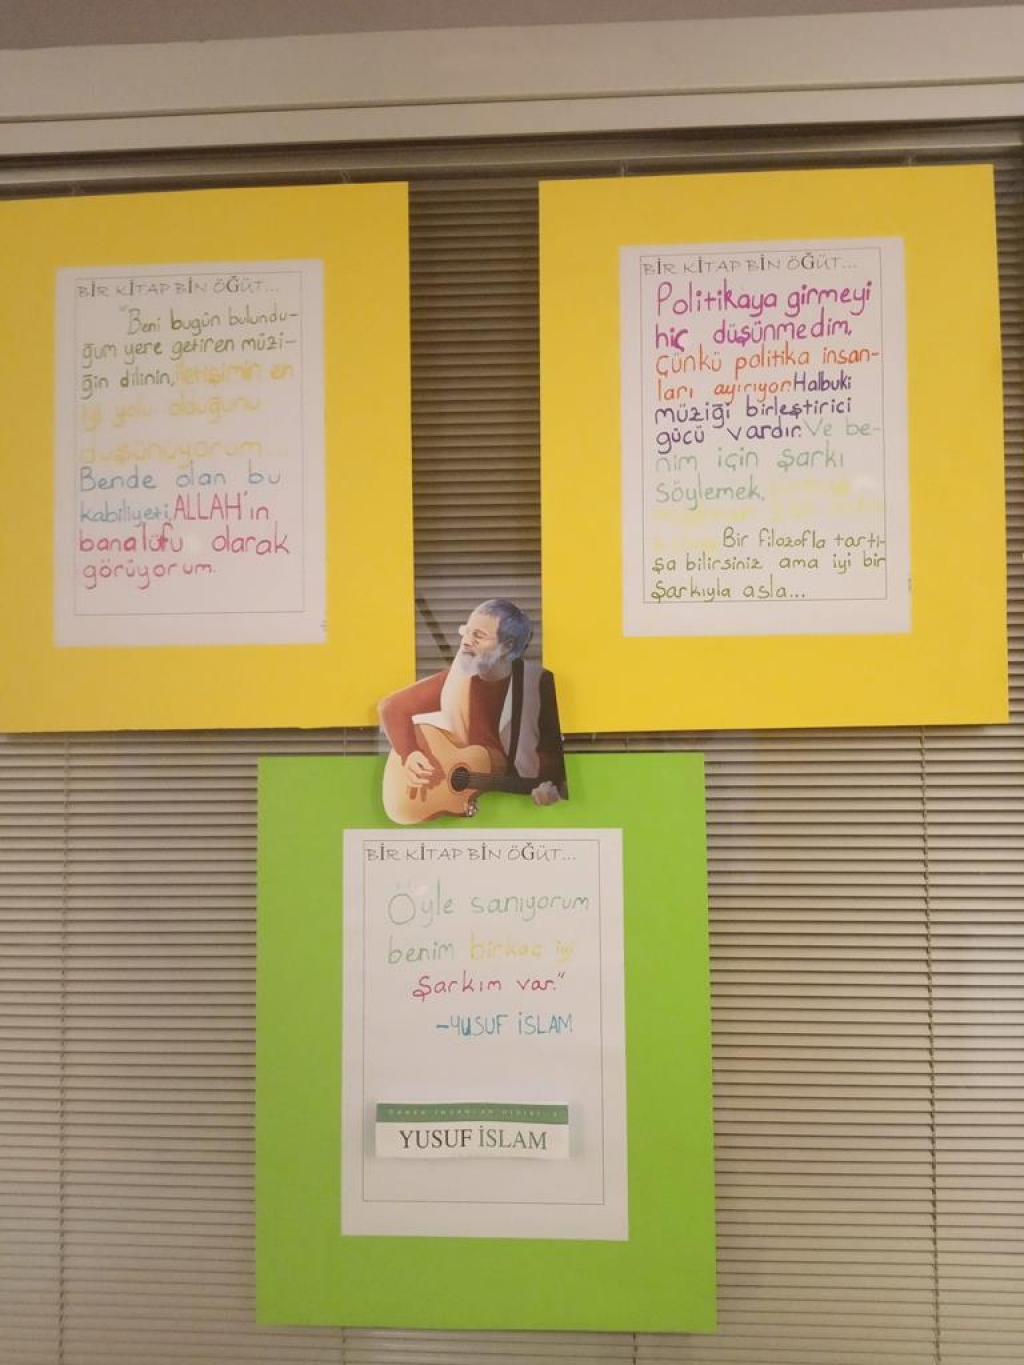 BİR KİTAP BİN ÖĞÜT...
"Beni bugün bulundu-
ğum yere getiren müzi-
ğin dilinin, iletişimin en
iyi yolu olduğunu
düşünüyorum...
Bende olan bu
kabiliyeti, ALLAH'ın
bana lütfu olarak
görüyorum.
BİR KİTAP BİN ÖĞÜT...
Politikaya girmeyi
hiç düşünmedim,
Çünkü politika insan-
ları ayırıyor. Halbuki
müziği birleştirici
gücü vardır. Ve be-
nim için şarkı
söylemek,
Bir filozofla tartı-
şa bilirsiniz ama iyi bir
şarkıyla asla...
BİR KİTAP BİN ÖĞÜT...
Öyle sanıyorum
benim birkaç iyi
şarkım var."
-YUSUF İSLAM
YUSUF İSLAM